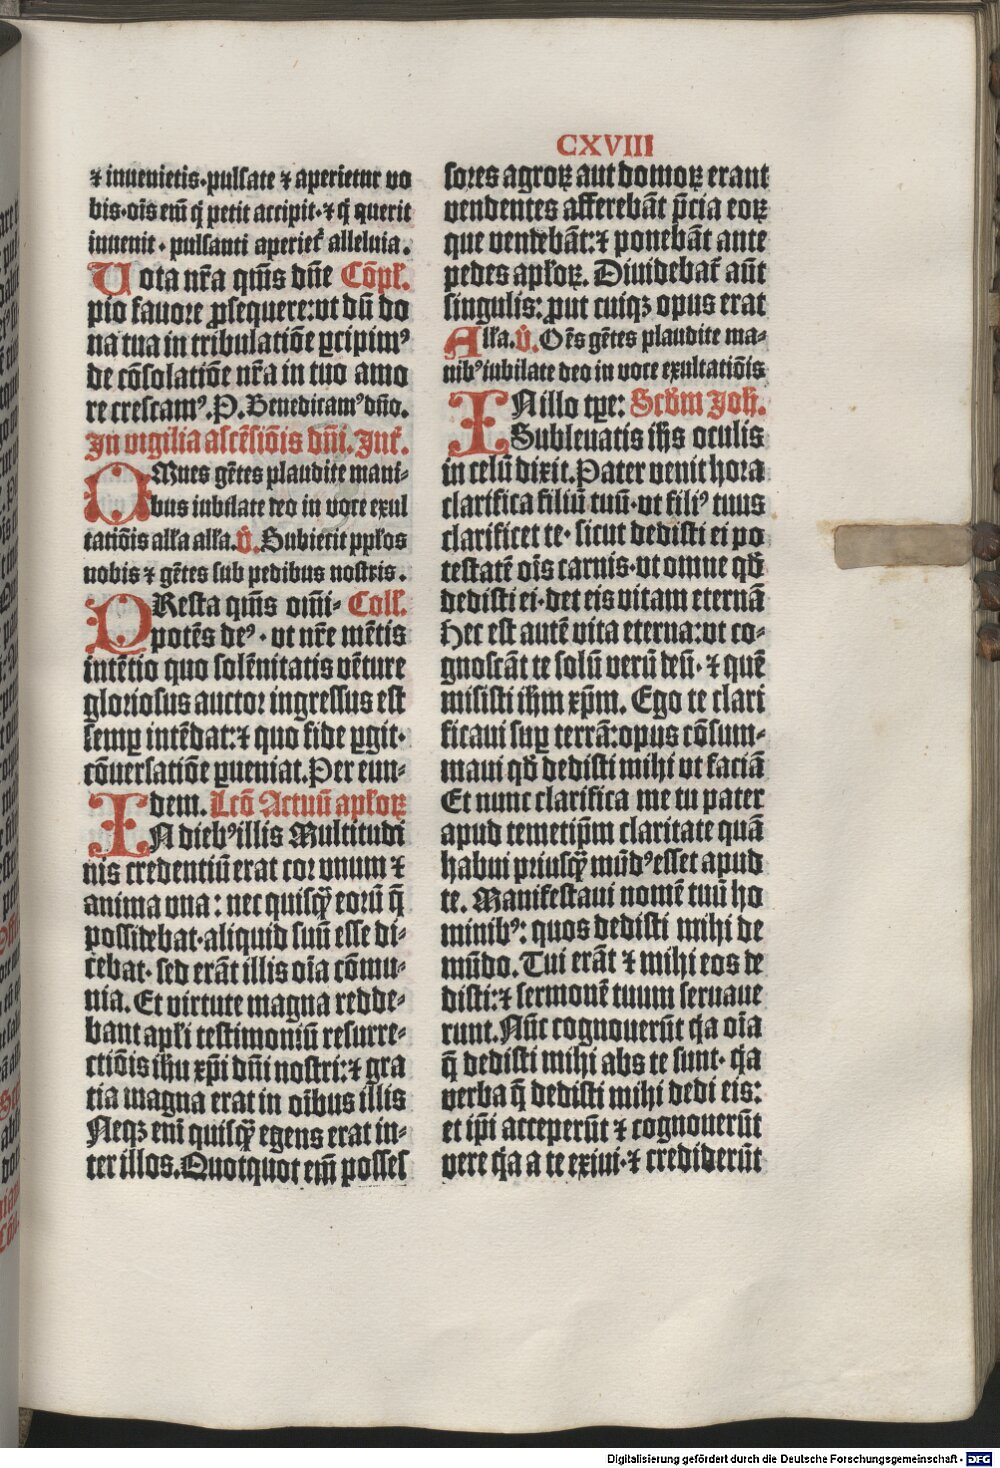 CXVIII
⁊ inuenietis·pulsate ⁊ aperietur vo
bis·oīs em̄ q̇ petit accipit·⁊ q̇ querit
inuenit·pulsanti aperiet᷑ alleluia.
Uota nr̄a qm̄s dn̄e Cōpl̄.
pio fauore ꝓsequere:vt dū do
na tua in tribulatiōe ꝑcipimꝰ
de cōsolatiōe nr̄a in tuo amo
re crescamꝰ.P. Benedicamꝰ dn̄o.
In vigilia ascēsiōis dn̄i. Int᷑.
OMnes gētes plaudite mani-
bus iubilate deo in voce exul
tatiōis all̄a all̄a.v̄. Subiecit ppl̄os
nobis ⁊ gētes sub pedibus nostris.
PResta qm̄s om̄i- Coll̄.
potēs deꝰ·vt nr̄e mētis
intētio quo solēnitatis vēture
gloriosus auctor ingressus est
semꝑ intēdat:⁊ quo fide ꝑgit·
cōuersatiōe ꝑueniat.Per eun-
dem. Lcō Actuū apl̄oꝝ
IN diebꝰ illis Multitudi
nis credentiū erat cor vnum ⁊
anima vna: nec quisq̄ȝ eorū q̄
possidebat·aliquid suū esse di-
cebat·sed erāt illis oīa cōmu-
nia. Et virtute magna redde-
bant apl̄i testimoniū resurre-
ctiōis ih̄u xp̄i dn̄i nostri:⁊ gra
tia magna erat in oībus illis
Neqꝫ em̄ quisq̄ȝ egens erat in-
ter illos.Quotquot em̄ posses
sores agroꝝ aut domoꝝ erant
vendentes afferebāt p̄cia eoꝝ
que vendebāt:⁊ ponebāt ante
pedes apl̄oꝝ. Diuidebat᷑ aūt
singulis: ꝓut cuiqꝫ opus erat
All̄a.v̄. Om̄s gētes plaudite ma-
nibꝰ iubilate deo in voce exultatiōis
IN illo tꝑe: Scd̄m Joh̄.
Subleuatis ih̄s oculis
in celū dixit.Pater venit hora
clarifica filiū tuū·vt filiꝰ tuus
clarificet te·sicut dedisti ei po
testatē oīs carnis·vt omne qd̄
dedisti ei·det eis vitam eternā
Hec est autē vita eterna:vt co-
gnoscāt te solū verū deū·⁊ quē
misisti ih̄m xp̄m. Ego te clari
ficaui suꝑ terrā:opus cōsum-
maui qd̄ dedisti mihi vt faciā
Et nunc clarifica me tu pater
apud temetip̄m claritate quā
habui priusq̄ȝ mūdꝰ esset apud
te. Manifestaui nomē tuū ho
minibꝰ: quos dedisti mihi de
mūdo. Tui erāt ⁊ mihi eos de
disti:⁊ sermonē tuum seruaue
runt.Nūc cognouerūt q̇a oīa
q̄ dedisti mihi abs te sunt·q̇a
verba q̄ dedisti mihi dedi eis:
et ip̄i acceperūt ⁊ cognouerūt
vere q̇a a te exiui·⁊ crediderūt
Digitalisierung gefördert durch die Deutsche Forschungsgemeinschaft - DFG